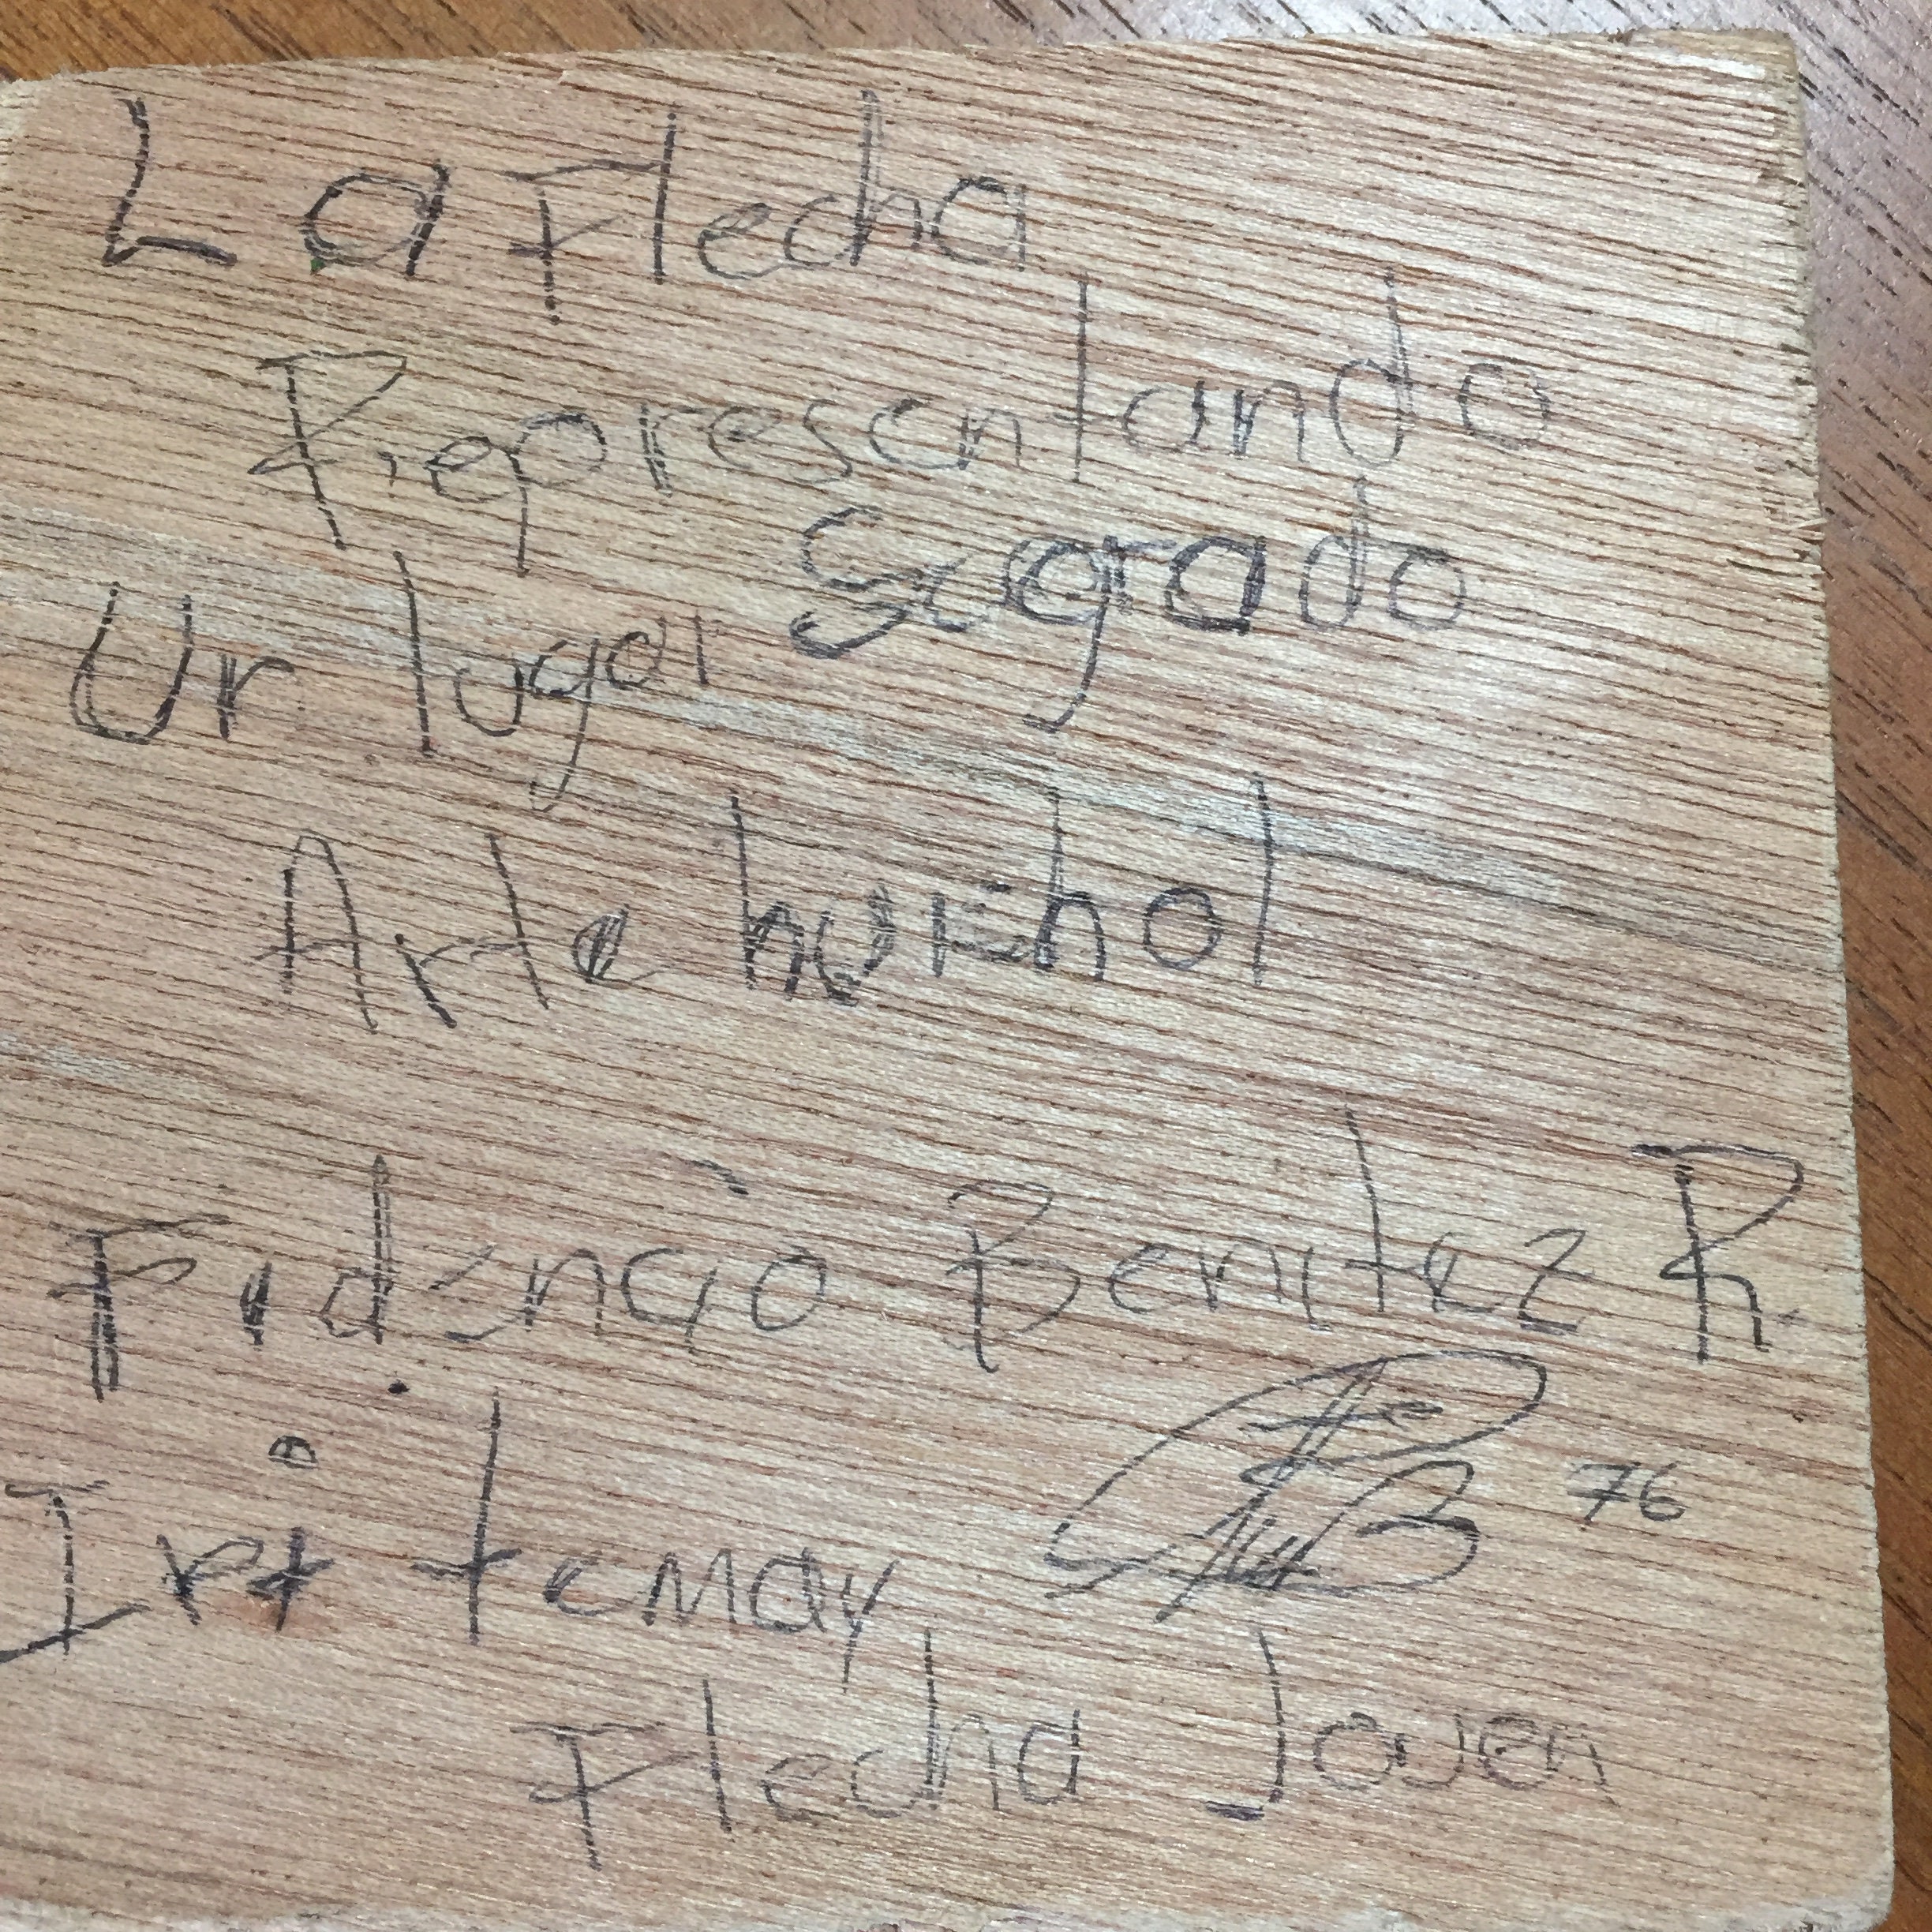 La Flecha
Representando
Un lugar Sagrado
Arte huichol
Fidencio Benitez R.
temay 76
Flecha Joven